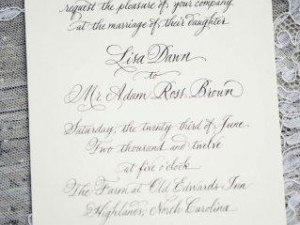 request the pleasure of your company
at the marriage of their daughter
Lisa Dawn
to
Mr Adam Ross Brown
Saturday, the twenty third of June
Two thousand and twelve
at five o'clock
The Farm at Old Edwards Inn
Highlands, North Carolina